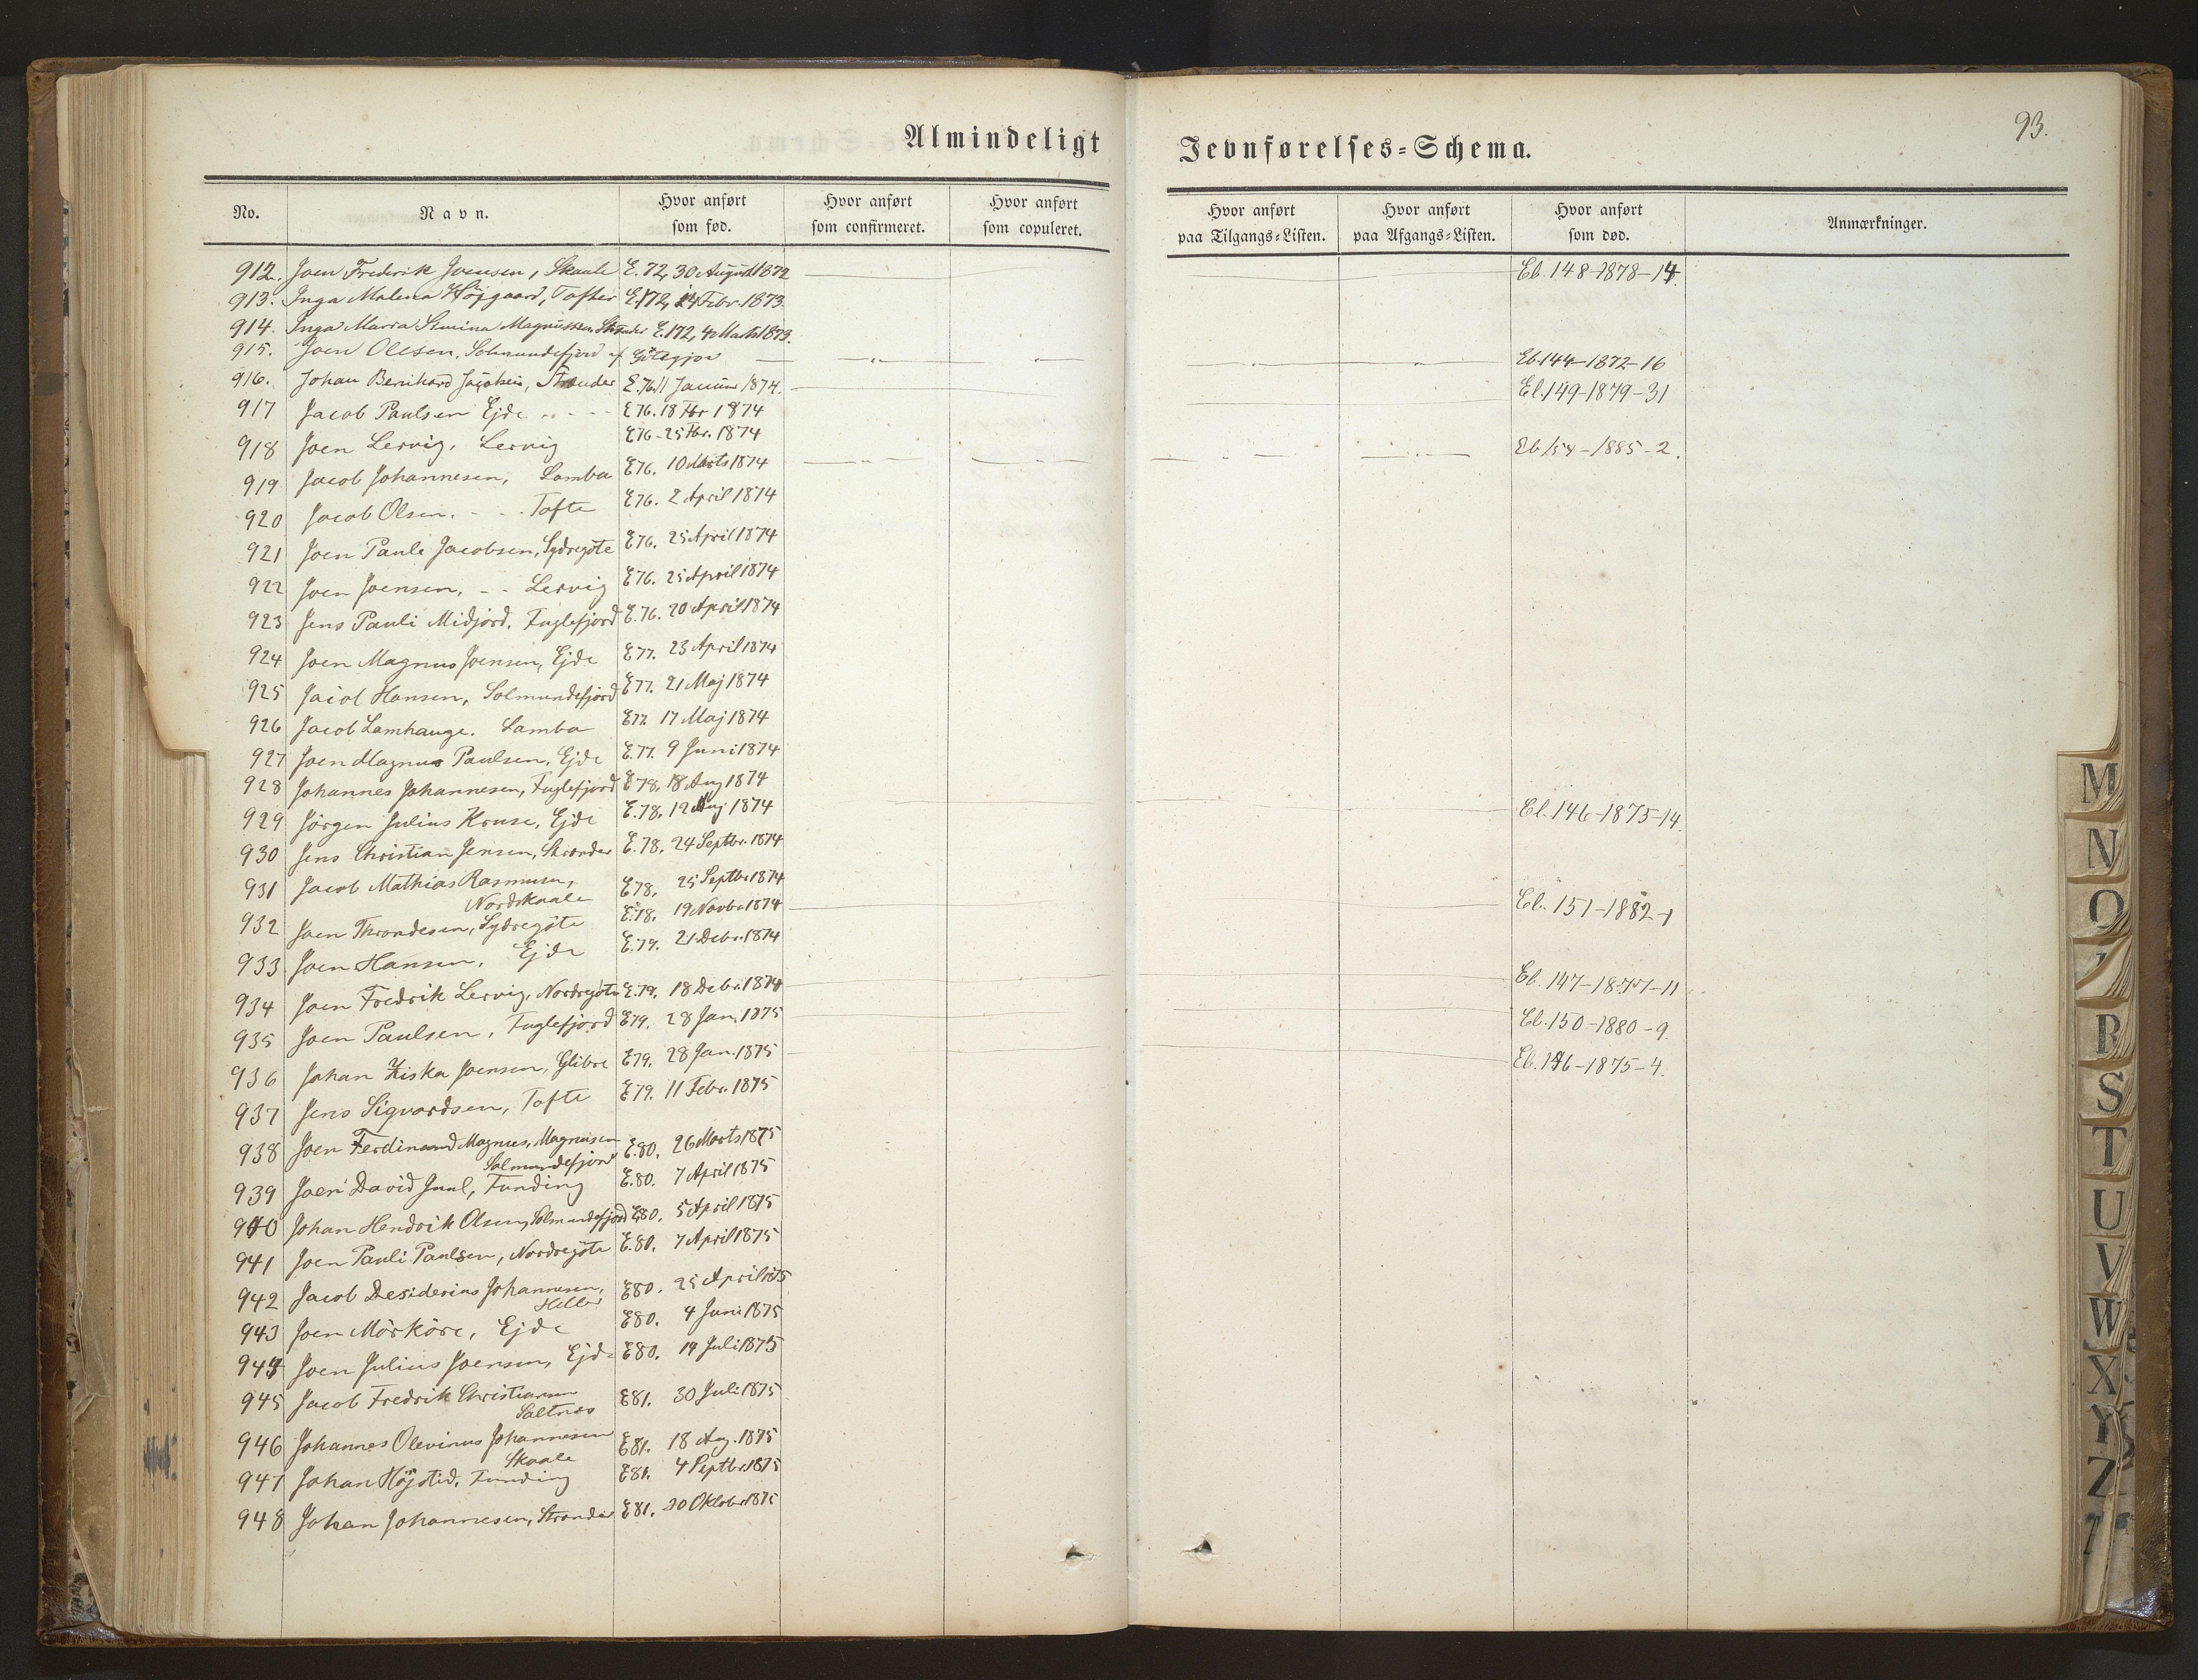 93.
Almindeligt Jevnførelses-Schema.
No. Navn. Hvor anført som fød. Hvor anført som confirmeret. Hvor anført som copuleret. Hvor anført paa Tilgangs-Listen. Hvor anført paa Afgangs-Listen. Hvor anført som død. Anmærkninger.
912. Joen Frederik Joensen, Skaale E. 72, 30 August 1872 Eb. 148-1878-14.
913. Inga Malena Højgaard, Tofter E. 172, 14 Febr. 1873.
914. Inga Maria Simina Magnussen, Strænder E. 172, 4 Marts 1873.
915. Joen Olesen, Solmundefjord af Gøtegjov — „ — „ — „ — „ Eb. 144-1872-16
916. Johan Bernhard Jacobsen, Strænder E. 76. 11 Januar 1874. El. 149-1879-31
917 Jacob Paulsen Ejde E 76. 18 Fbr 1874
918 Joen Lervig, Lervig E 76 - 25 Fbr. 1874 Eb 154-1885-2.
919 Jacob Johannesen, Lamba E 76. 10 Marts 1874
920 Jacob Olsen. - - . Tofte E 76. 2 April 1874
921 Joen Pauli Jacobsen, Sydregöte E 76. 25 April 1874
922 Joen Joensen, - - Lervig E 76. 25 April 1874
923 Jens Pauli Midjord. Fuglefjord E. 76. 20 April 1874
924 Joen Magnus Joensen, Ejde E 77. 23 April 1874
925 Jacob Hansen, Solmundefjord E 77. 21 Maj 1874
926 Jacob Lamhauge. Lamba E 77. 17 Maj 1874
927 Joen Magnus Paulsen, Ejde E. 77. 9 Juni 1874
928 Johannes Johannesen, Fuglefjord E 78, 18 Aug 1874
929 Jörgen Julius Kruse, Ejde E. 78, 12 Aug 1874 El. 146-1875-14.
930 Jens Christian Jensen, Strænder E. 78, 24 Septbr. 1874
931 Jacob Mathias Rasmusen, E 78, 25 Septbr 1874
Nordskaale
932 Joen Throndesen, Sydregöte E. 78. 19 Novbr 1874 El. 151-1882-1
933 Joen Hansen, Ejde E. 79. 21 Debr. 1874
934 Joen Fredrik Lervig, Nordregöte E. 79. 18 Debr. 1874 El. 147-1877-11
935 Joen Paulsen, Fuglefjord E 79. 28 Jan. 1875 El. 150-1880-9.
936 Johan Ziska Joensen, Glibre E 79. 28 Jan. 1875 El. 146-1875-4.
937 Jens Sigvardsen, Tofte E 79. 11 Febr. 1875
938 Joen Ferdinand Magnus, Magnusen E. 80, 26 Marts 1875
Solmundefjord
939 Joen David Juul, Funding E. 80. 7 April 1875
940 Johan Hendrik Olsen, Solmundefjord E 80. 5 April 1875
941 Joen Pauli Paulsen, Nordregöte E. 80. 7 April 1875
942 Jacob Desiderius Johannesen, E 80. 25 April 1875
Heller
943 Joen Mörköre, Ejde E 80. 4 Juni 1875
944 Joen Julius Joensen, Ejde E 80. 14 Juli 1875
945 Jacob Fredrik Christiansen E 81. 30 Juli 1875
Saltnæs
946 Johannes Olevinus Johannesen E 81. 18 Aug. 1875
Skaale
947 Johan Højsted, Funding E 81. 4 Septbr. 1875
948 Johan Johannesen, Strænder E 81. 20 Oktobr 1875
M
N
O
R
S
T
U
V
W
X
Y
Z